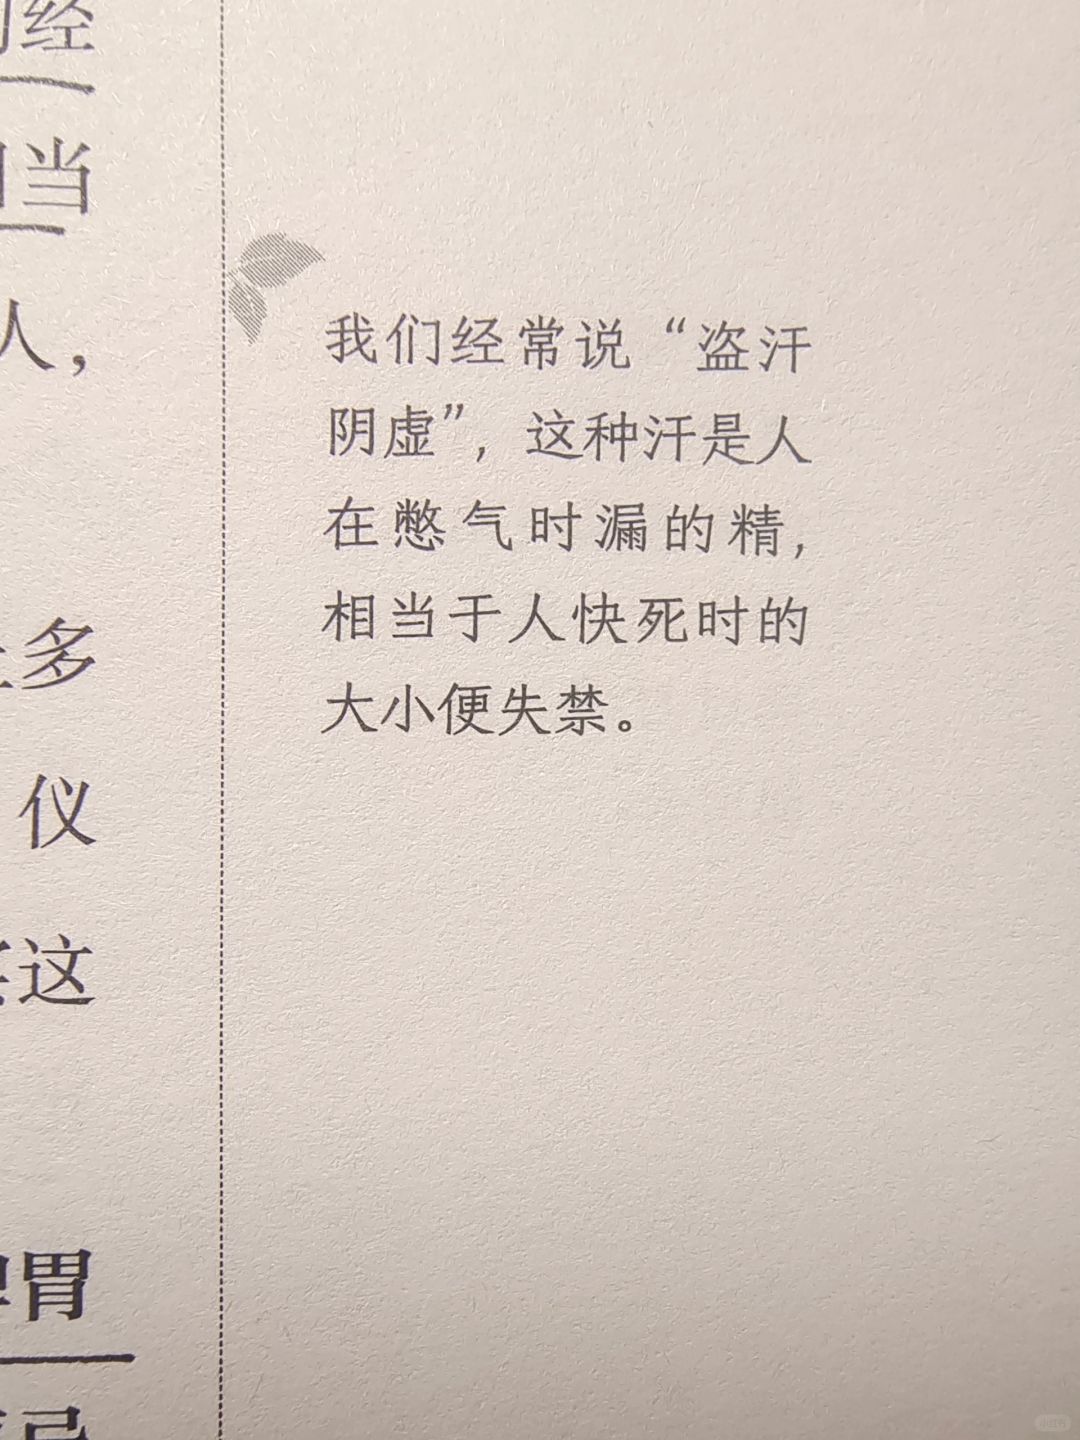 经
当
人，
多
仪
这
胃
我们经常说“盗汗
阴虚”，这种汗是人
在憋气时漏的精，
相当于人快死时的
大小便失禁。
小红书